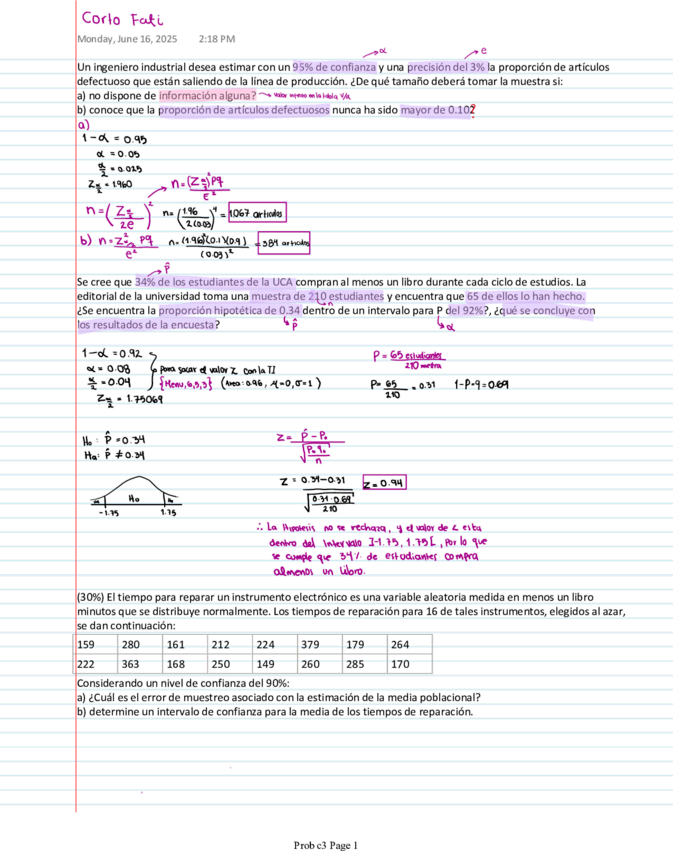 Corto Fati
Monday, June 16, 2025 2:18 PM
→α →e
Un ingeniero industrial desea estimar con un 95% de confianza y una precisión del 3% la proporción de artículos
defectuoso que están saliendo de la línea de producción. ¿De qué tamaño deberá tomar la muestra si:
a) no dispone de información alguna? → valor
b) conoce que la proporción de artículos defectuosos nunca ha sido mayor de 0.10?
a)
1-α = 0.95
α = 0.05
α/2 = 0.025
Z α/2 = 1.960 n = (Z α/2)² pq / e²
n = (Z α/2 / 2e)² n = (1.96 / 2(0.03))² = 1,067 articulos
b) n = Z² α/2 pq / e² n = (1.96)²(0.1)(0.9) / (0.03)² = 384 articulos
→ p̂
Se cree que 34% de los estudiantes de la UCA compran al menos un libro durante cada ciclo de estudios. La
editorial de la universidad toma una muestra de 210 estudiantes y encuentra que 65 de ellos lo han hecho.
→n
¿Se encuentra la proporción hipotética de 0.34 dentro de un intervalo para P del 92%?, ¿qué se concluye con
los resultados de la encuesta? ↳ p̂ ↳ α
1-α = 0.92 P = 65 estudiantes / 210 metra
α = 0.08 para sacar el valor Z con la TI
α/2 = 0.04 {Menu, 6, 5, 3} (Area: 0.96, μ=0, σ=1) P = 65 / 210 = 0.31 1-P=q=0.69
Z α/2 = 1.75069
Ho: p̂ = 0.34 Z = p̂ - P₀ / √(P₀ q₀ / n)
Ha: p̂ ≠ 0.34
Z = 0.34-0.31 / √(0.31·0.69 / 210) Z = 0.94
Ho
-1.75 1.75
∴ La Hipotesis no se rechaza, y el valor de Z esta
dentro del intervalo ]-1.75, 1.75[, por lo que
se cumple que 34% de estudiantes compra
almenos un libro.
(30%) El tiempo para reparar un instrumento electrónico es una variable aleatoria medida en menos un libro
minutos que se distribuye normalmente. Los tiempos de reparación para 16 de tales instrumentos, elegidos al azar,
se dan continuación:
159 280 161 212 224 379 179 264
222 363 168 250 149 260 285 170
Considerando un nivel de confianza del 90%:
a) ¿Cuál es el error de muestreo asociado con la estimación de la media poblacional?
b) determine un intervalo de confianza para la media de los tiempos de reparación.
Prob c3 Page 1